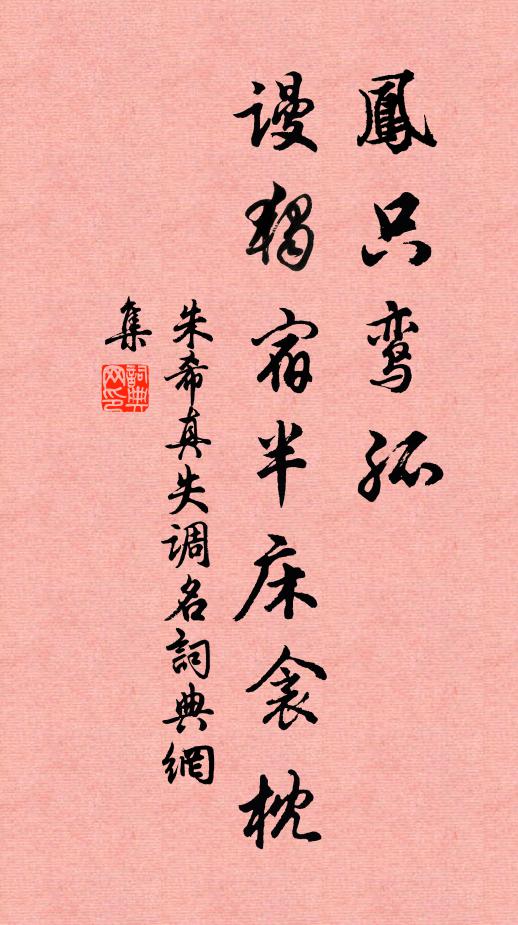 鳳只鸾孤
谩獨宿半床衾枕
朱希真失调名詞典網
集
詞典
网印